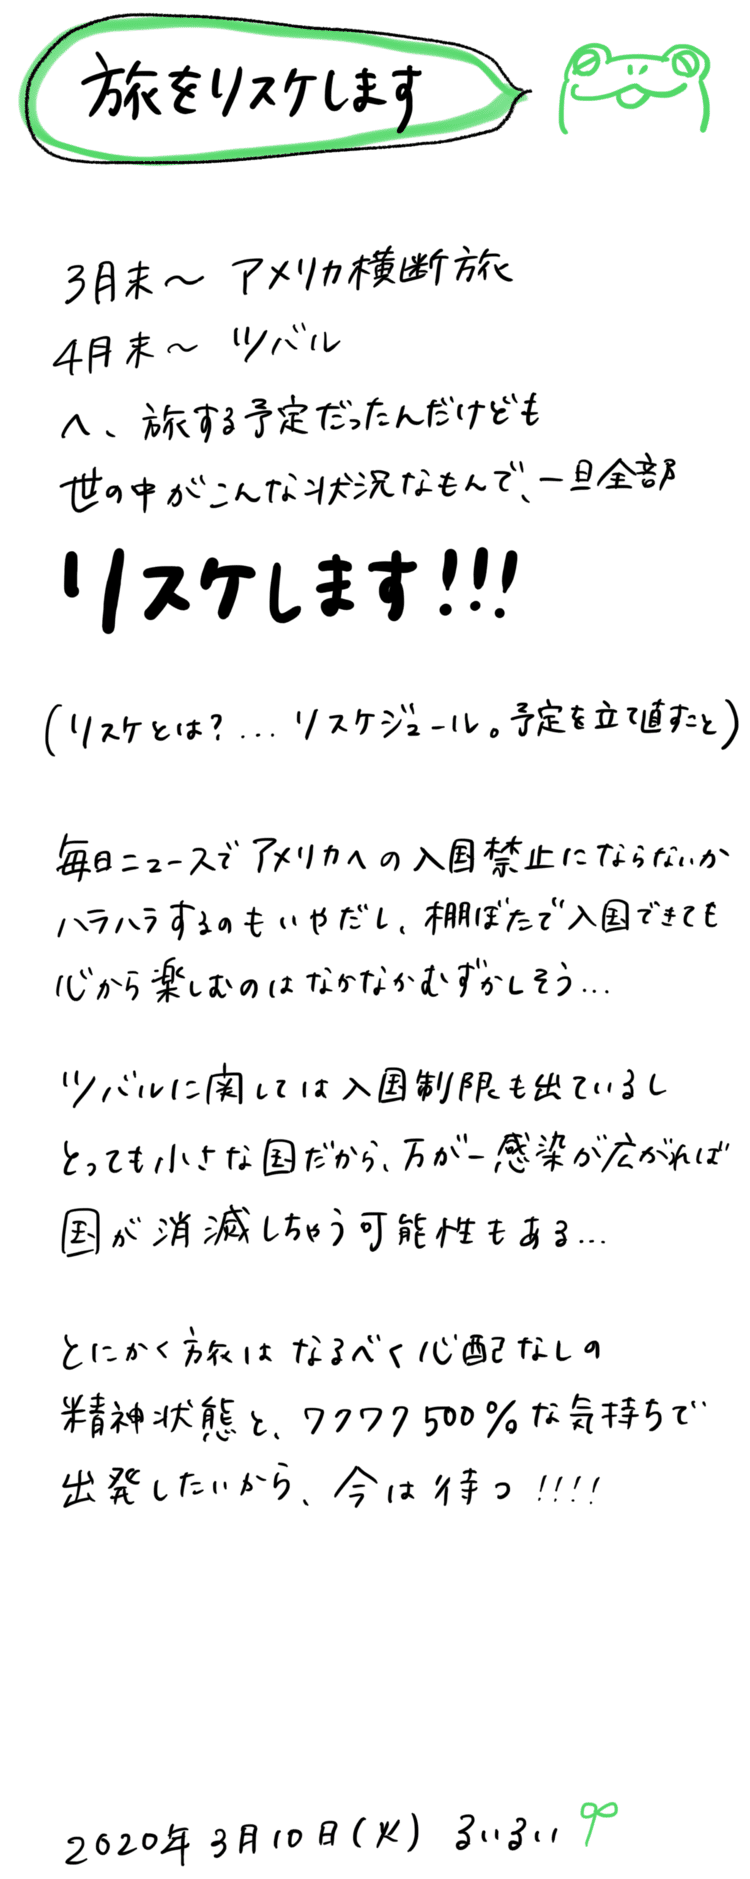 旅をリスケします
3月末〜 アメリカ横断旅
4月末〜 ツバル
へ、旅する予定だったんだけども
世の中がこんな状況なもんで、一旦全部
リスケします!!!
(リスケとは?...リスケジュール。予定を立て直すこと)
毎日ニュースでアメリカへの入国禁止にならないか
ハラハラするのもいやだし、棚ぼたで入国できても
心から楽しむのはなかなかむずかしそう...
ツバルに関しては入国制限も出ているし
とっても小さな国だから、万が一感染が広がれば
国が消滅しちゃう可能性もある...
とにかく旅はなるべく心配なしの
精神状態と、ワクワク500%な気持ちで
出発したいから、今は待つ!!!!
2020年3月10日(火) るいるい